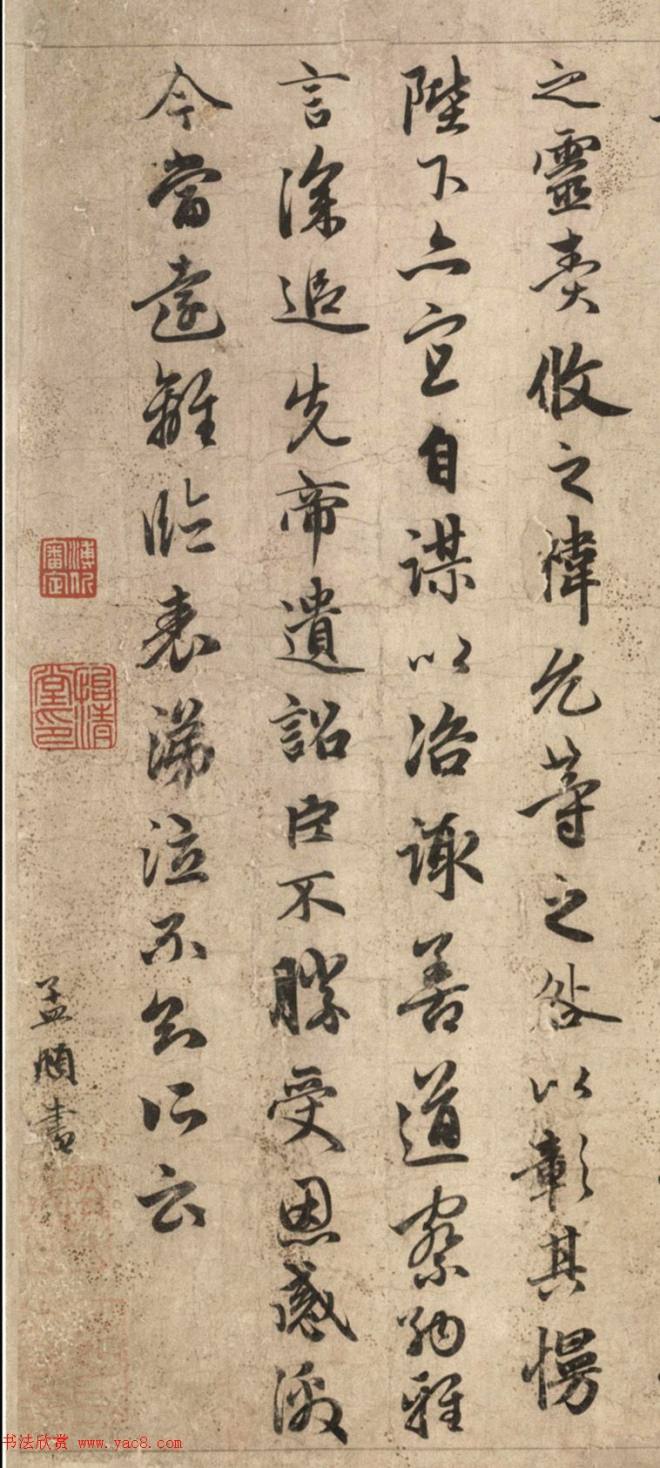 之靈責攸之禕允等之咎以彰其慢
陛下亦宜自謀以咨諏善道察納雅
言深追先帝遺詔臣不勝受恩感激
今當遠離臨表涕泣不知所云
孟頫書
審定
挹清堂印
书法欣赏 www.yac8.com